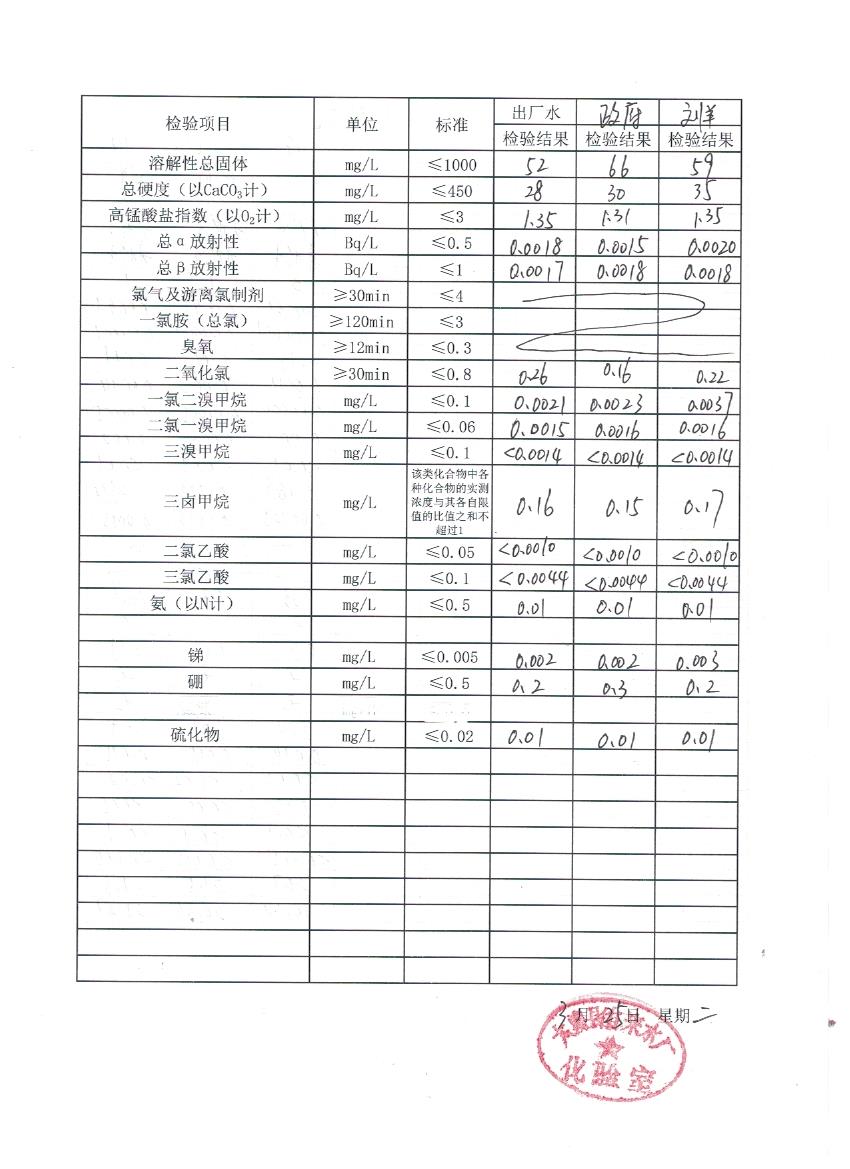 检验项目 单位 标准 出厂水 政府 刘羊
检验结果 检验结果 检验结果
溶解性总固体 mg/L ≤1000 52 66 59
总硬度（以CaCO₃计） mg/L ≤450 28 30 35
高锰酸盐指数（以O₂计） mg/L ≤3 1.35 1.31 1.35
总α放射性 Bq/L ≤0.5 0.0018 0.0015 0.0020
总β放射性 Bq/L ≤1 0.0017 0.0018 0.0018
氯气及游离氯制剂 ≥30min ≤4
一氯胺（总氯） ≥120min ≤3
臭氧 ≥12min ≤0.3
二氧化氯 ≥30min ≤0.8 0.26 0.16 0.22
一氯二溴甲烷 mg/L ≤0.1 0.0021 0.0023 0.0037
二氯一溴甲烷 mg/L ≤0.06 0.0015 0.0016 0.0016
三溴甲烷 mg/L ≤0.1 <0.0014 <0.0014 <0.0014
三卤甲烷 mg/L 该类化合物中各
种化合物的实测
浓度与其各自限
值的比值之和不
超过1 0.16 0.15 0.17
二氯乙酸 mg/L ≤0.05 <0.0010 <0.0010 <0.0010
三氯乙酸 mg/L ≤0.1 <0.0044 <0.0044 <0.0044
氨（以N计） mg/L ≤0.5 0.01 0.01 0.01
锑 mg/L ≤0.005 0.002 0.002 0.003
硼 mg/L ≤0.5 0.2 0.3 0.2
硫化物 mg/L ≤0.02 0.01 0.01 0.01
3月25日 星期二
水厂
化验室